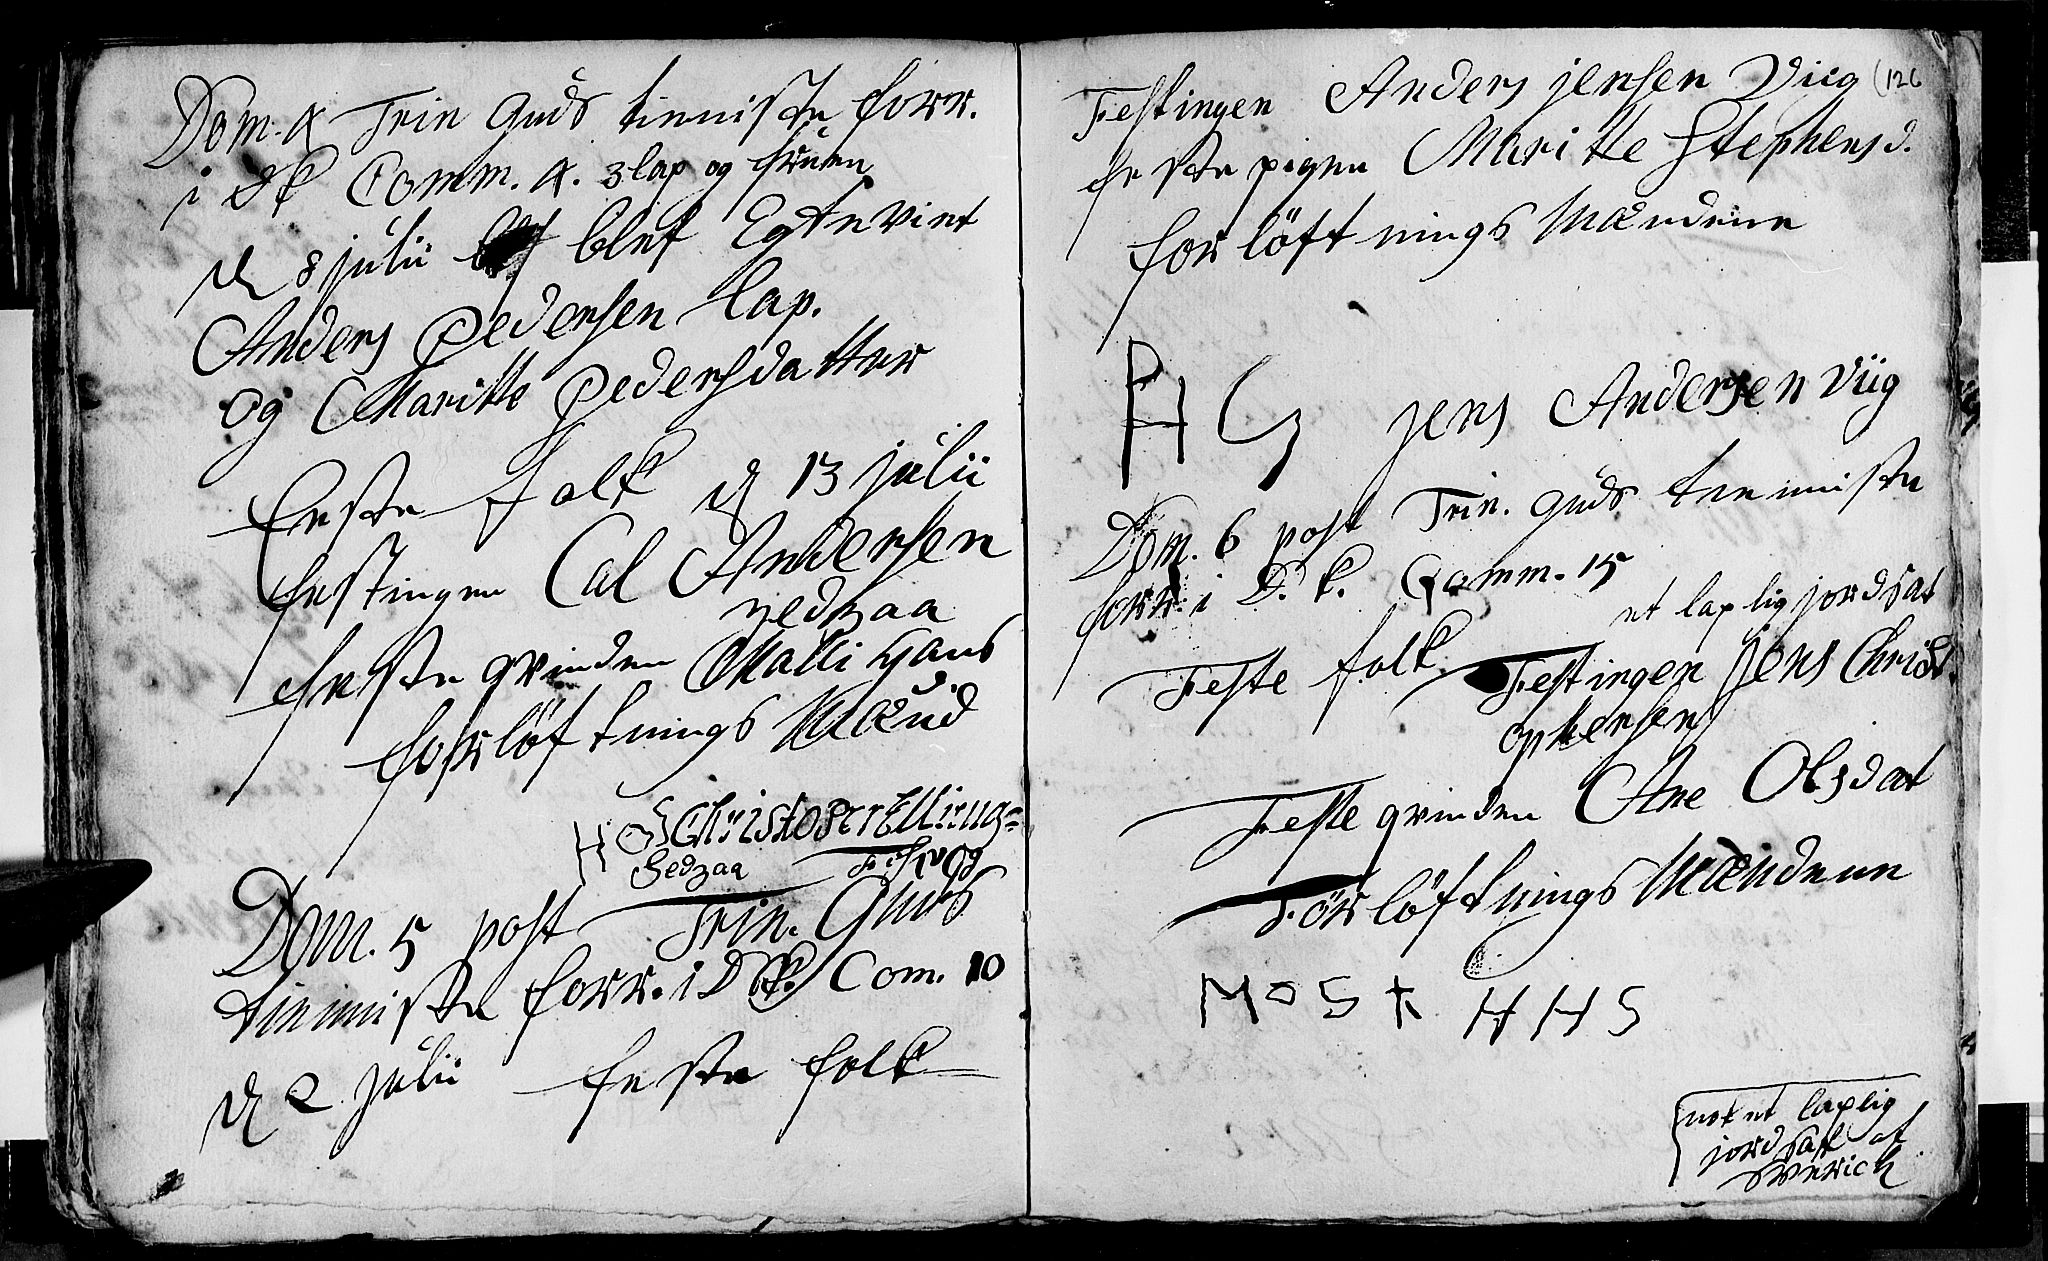 Dom. 4 Trin Guds tienniste forr.
i Dk Comm. 4. 3 lap og fruen
d 8 julii blef Egteviet
Anders Pedersen lap.
og Maritte Pedersdatter
feste folk d 13 julii
festingen Cal Andersen
zedzaa
feste qvinden Malli Hans
forlöftnings Mænd
HOS Christoper Elling=
Sedzaa
Dom. 5 post Trin. Guds
tienniste forr. i D k. Com. 10
d 2 julii feste folk
Festingen Anders jensen Viig (126
feste pigen Maritte Stephensd.
forlöftnings Mændene
PH G jens Andersen Viig
Dom. 6 post Trin. Guds tienniste
forr. i D. k. Comm. 15
et laplig jordsat
Feste folk Festingen Jens Christ
ophersen
Feste qvinden Ane Olsdat
Forlöftnings Mændene
MOS HHS
nok et laplig
jord sat af
Sverich